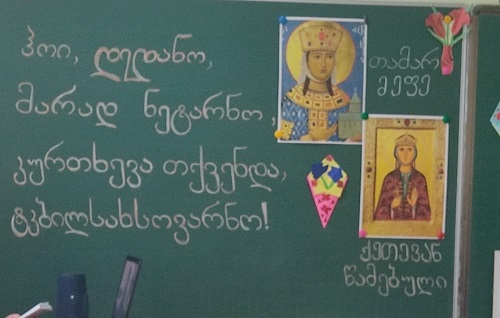 ჰოი, დედანო,
მარად ნეტარნო,
კურთხევა თქვენდა,
ტკბილსახსოვარნო!
თამარ
მეფე
ქეთევან
წამებული